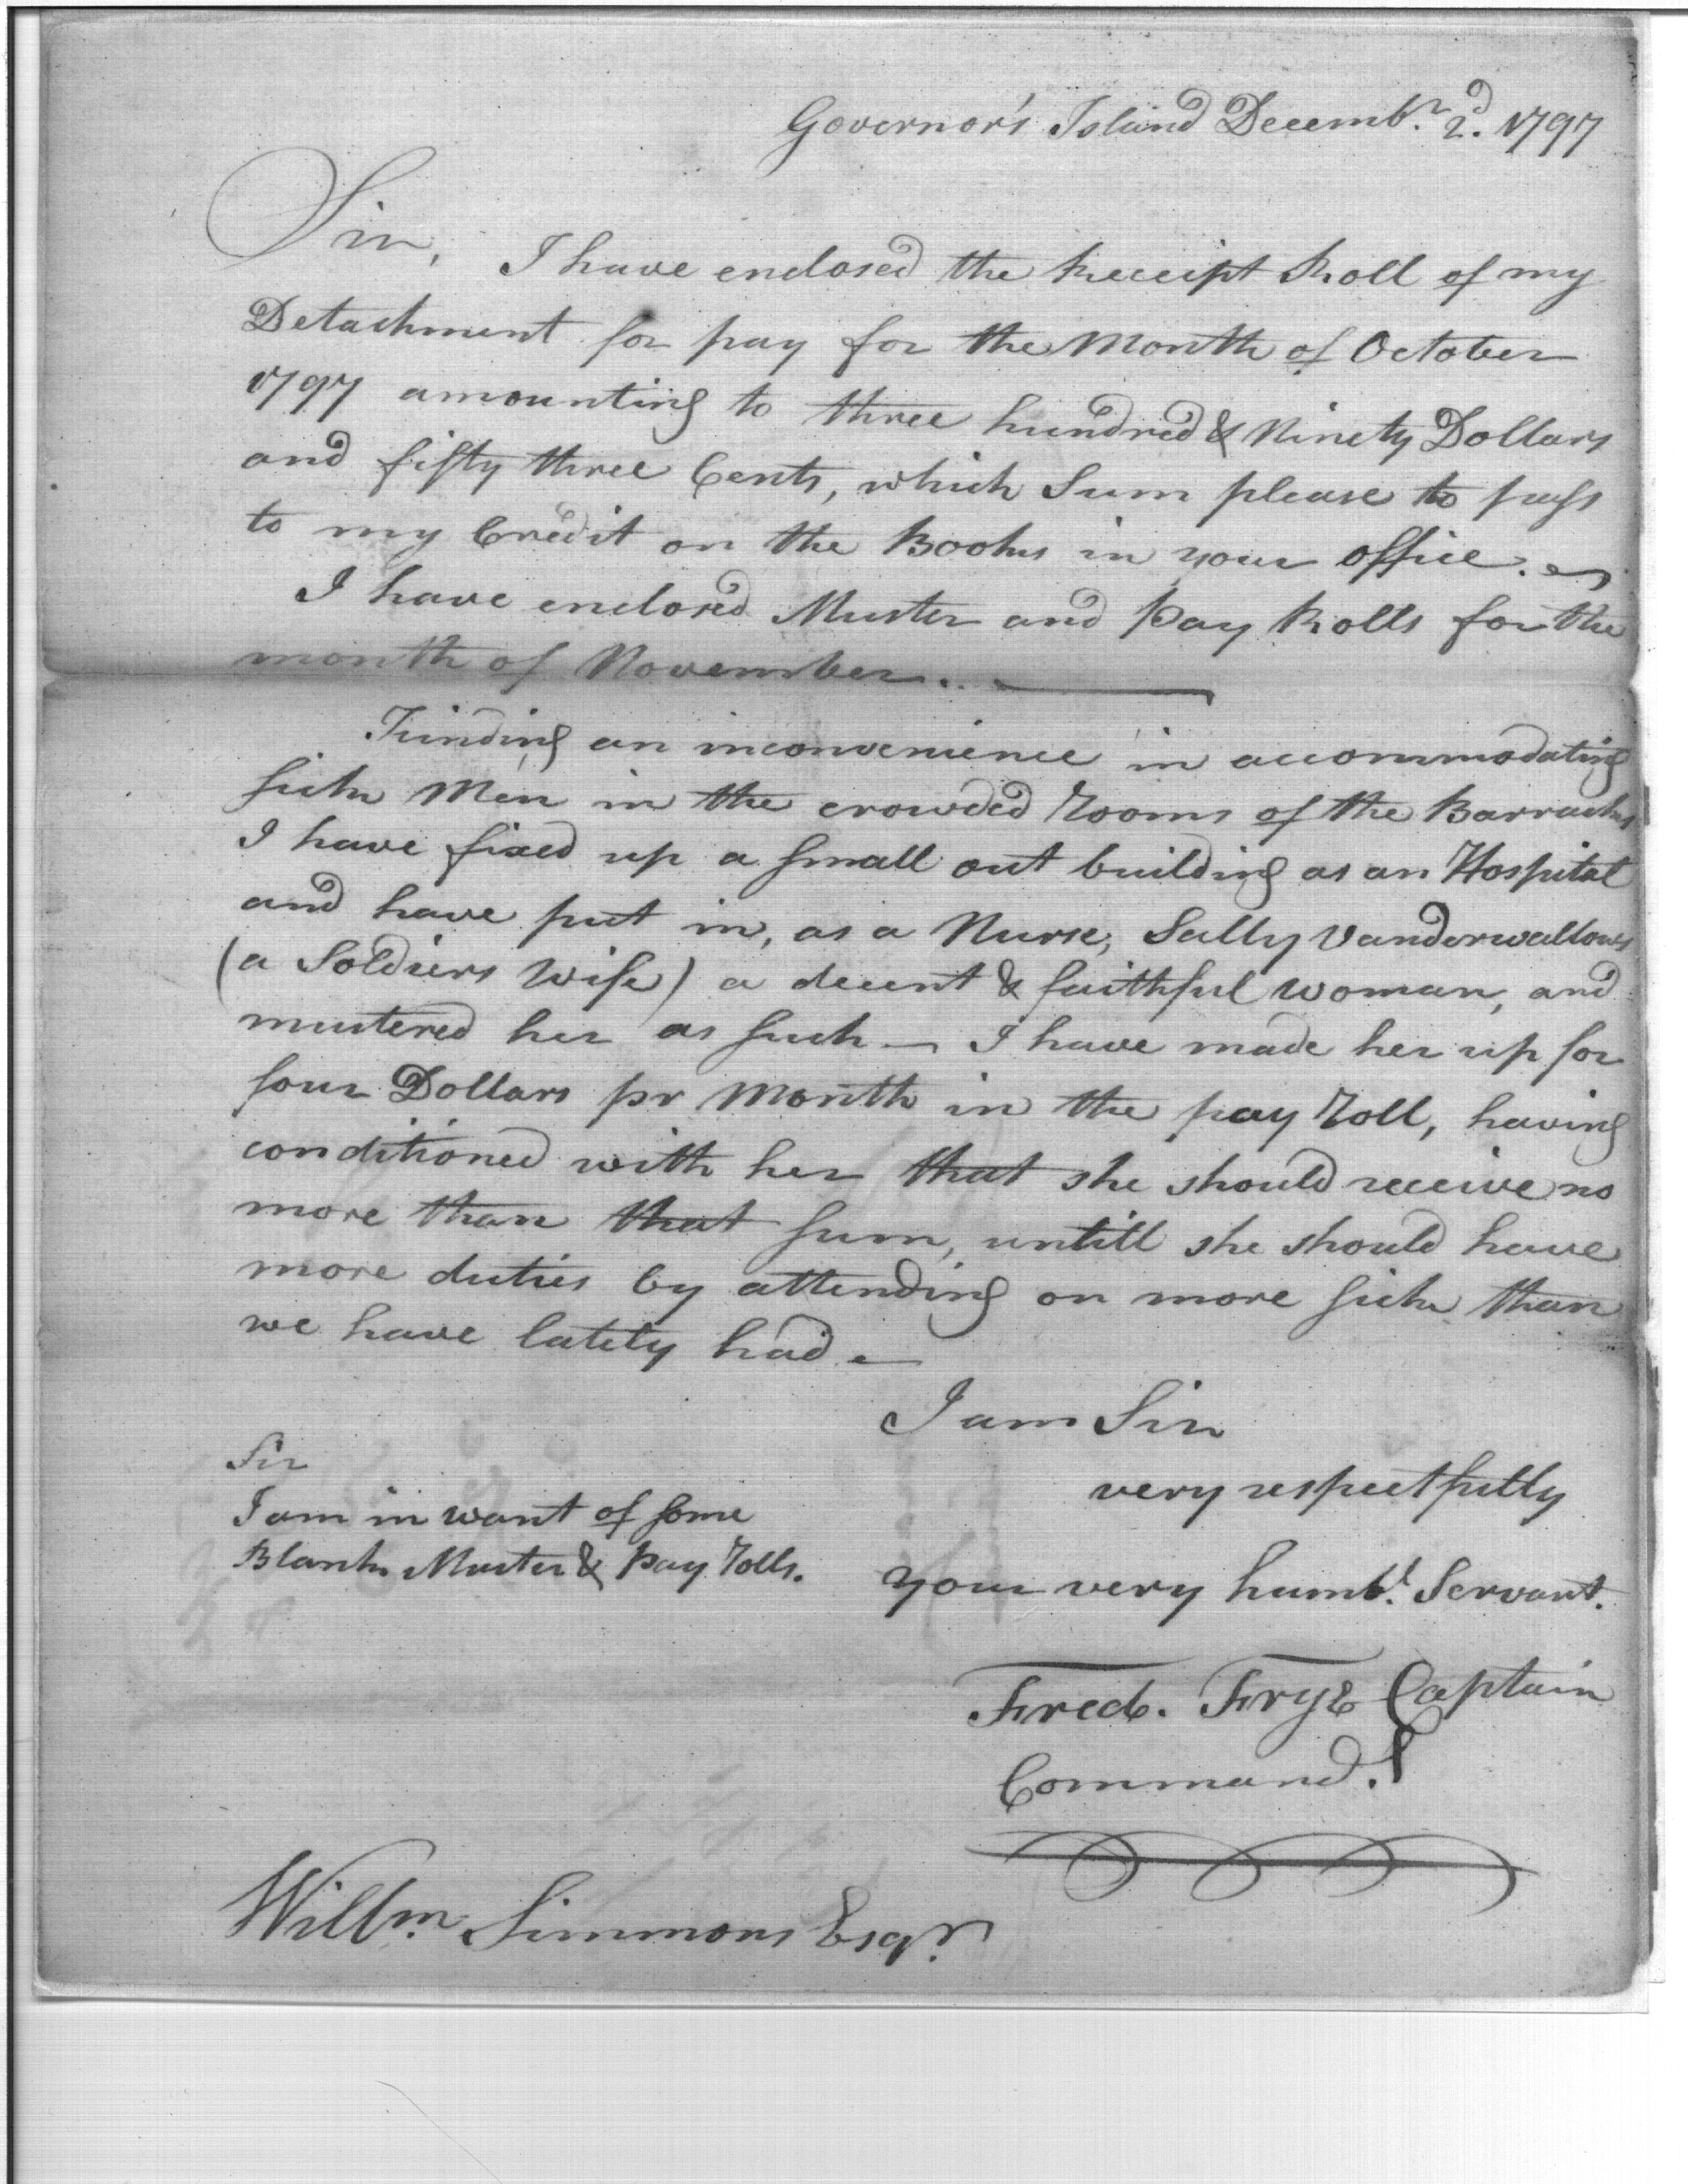 Governor's Island Decemb.r 2.d 1797
Sir, I have enclosed the Receipt Roll of my
Detachment for pay for the Month of October
1797 amounting to three hundred & Ninety Dollars
and fifty three Cents, which Sum please to pass
to my Credit on the Books in your office.
I have enclosed Muster and Pay Rolls for the
month of November.
Finding an inconvenience in accommodating
sick Men in the crowded Rooms of the Barracks
I have fixed up a small out building as an Hospital
and have put in, as a Nurse, Sally Vanderwallows
(a Soldiers Wife) a decent & faithful woman, and
mustered her as such — I have made her up for
four Dollars pr Month in the pay Roll, having
conditioned with her that she should receive no
more than that sum, untill she should have
more duties by attending on more sick than
we have lately had —
I am Sir
very respectfully
Your very humb.l Servant.
Fredk. Frye Captain
Command.t
Sir
I am in want of some
Blank Muster & Pay Rolls.
Willm. Simmons Esqr.